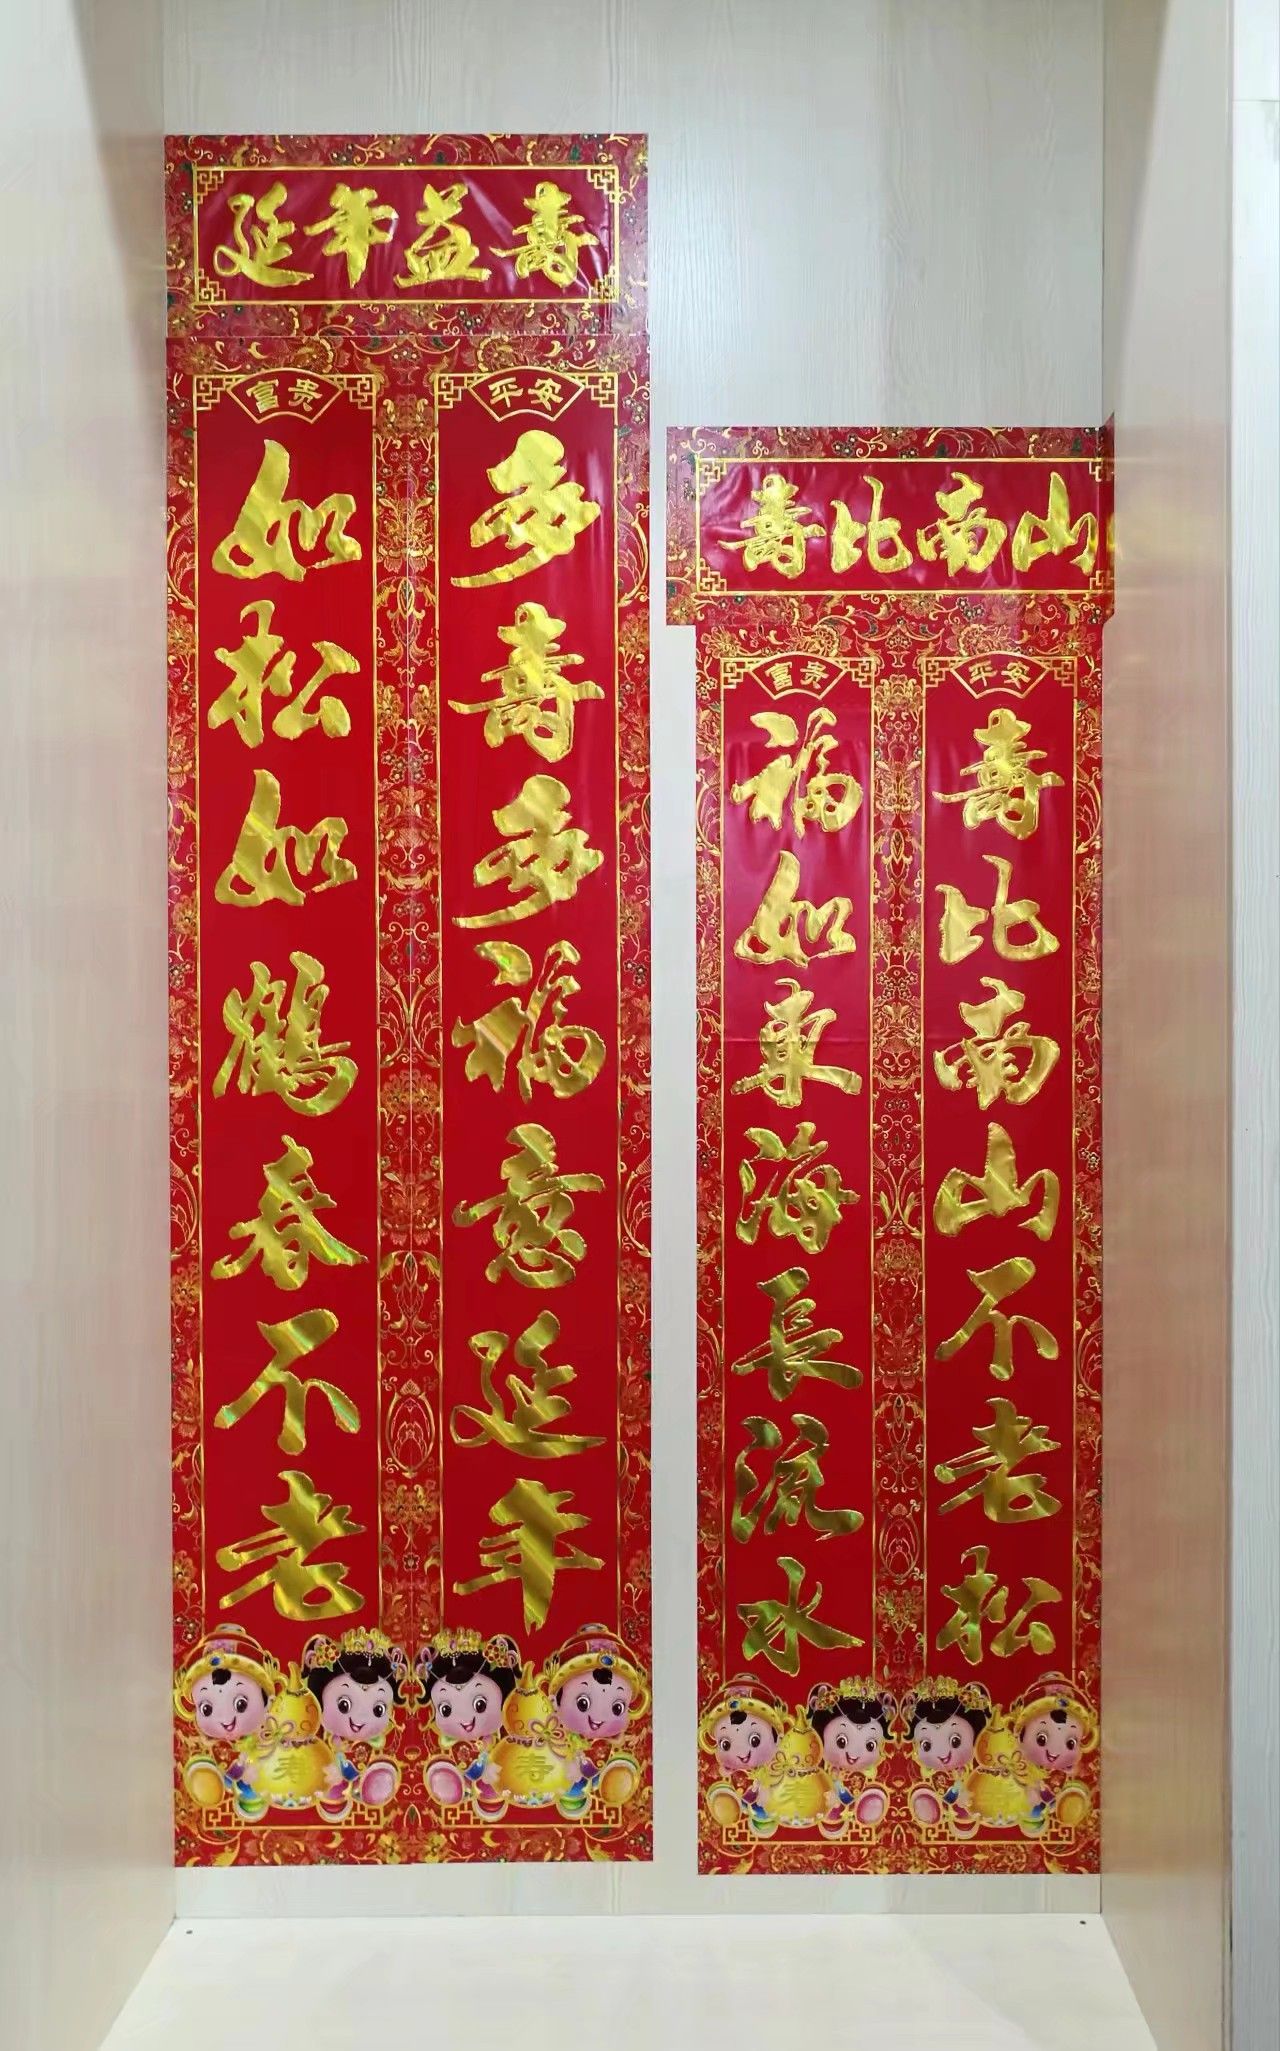 延年益壽
富贵
如松如鶴春不老
平安
多壽多福意延年
寿
寿
壽比南山
富贵
福如東海長流水
平安
壽比南山不老松
寿